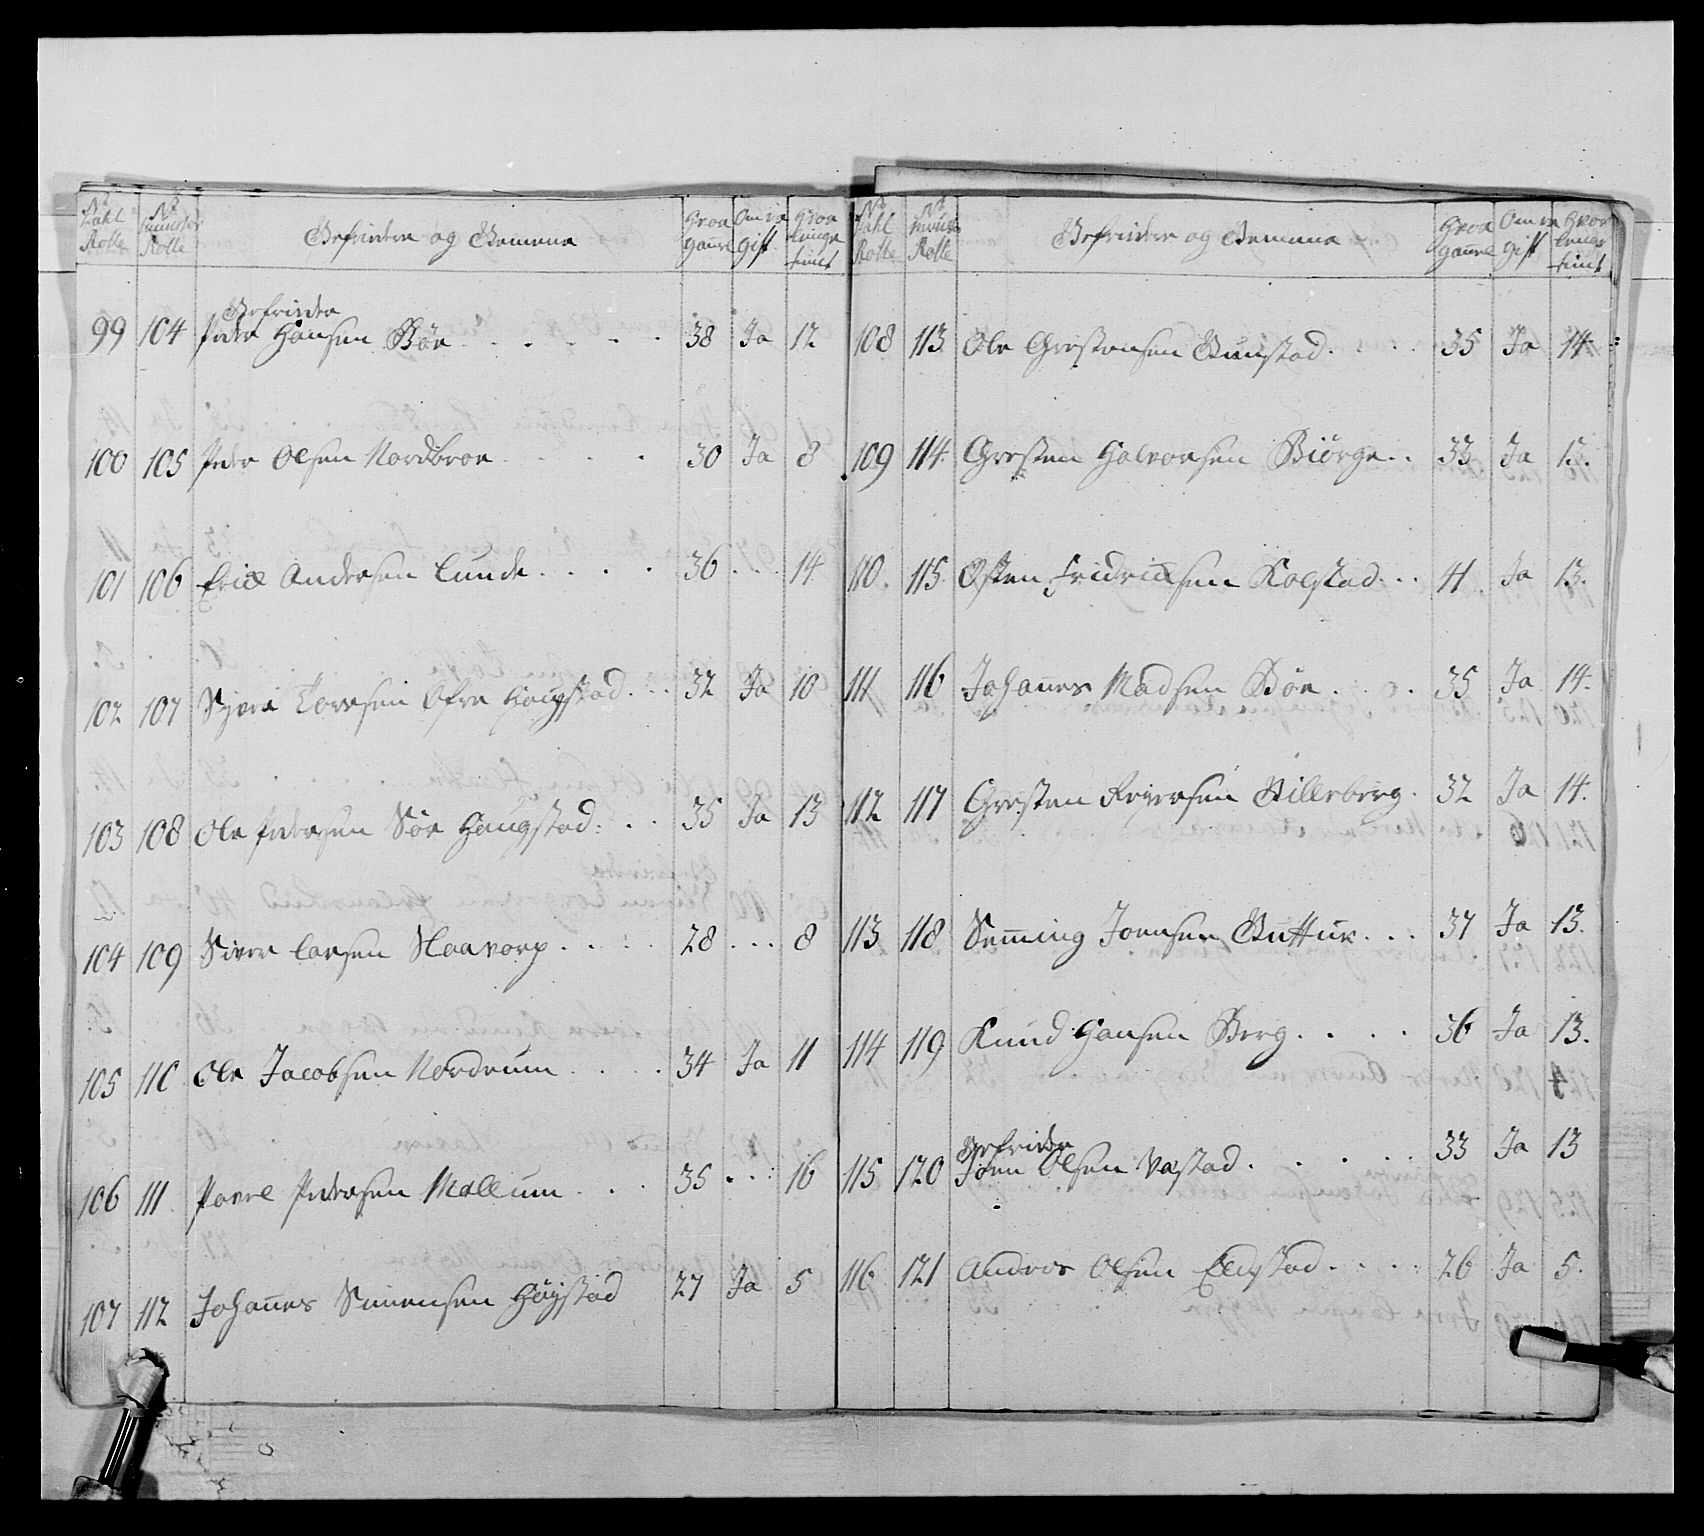 No Zahl Rolle No Munster Rolle Gefriedere og Gemene Hvor Gaml Om er Gift Hvor lenge tient
Gefrieder
99 104 Peder Hansen Böe . . . . . . 38 Ja 12
100 105 Peder Olsen Nordbroe . . . . . 30 Ja 8
101 106 Erich Andersen Lunde . . . . 36 . . . 14
102 107 Syver Toresen Ofre Haugstad . . . 32 Ja 10
103 108 Ole Pedersen Söe Haugstad : . . 35 Ja 13
104 109 Siver Larsen Skaavorp . . . . 28 . . . 8
105 110 Ole Jacobsen Nordrum . . . . 34 Ja 11
106 111 Povel Pedersen Mollum . . . 35 . . . 16
107 112 Johannes Simensen Höystad 27 Ja 5
No Zahl Rolle No Munster Rolle Gefriedere og Gemene Hvor Gaml Om er Gift Hvor lenge tient
108 113 Ole Grestensen Bunstad . . . . 35 Ja 14
109 114 Gresten Halvorsen Biörge . . 33 Ja 13.
110. 115 Osten Fridrichsen Kolstad . . . 41 Ja 13.
111 116 Johannes Madsen Böe . . . . 35 Ja 14.
112 117 Gresten Reiersen Killeberg . 32 Ja 14.
113 118 Semming Joensen Buttur . . . 37 Ja 13.
114 119 Knud Hansen Berg . . . . 36 Ja 13.
Gefrieder
115 120 Joen Olsen Vastad . . . . . 33 Ja 13
116 121 Anders Olsen Elstad . . . . 26 Ja 5.